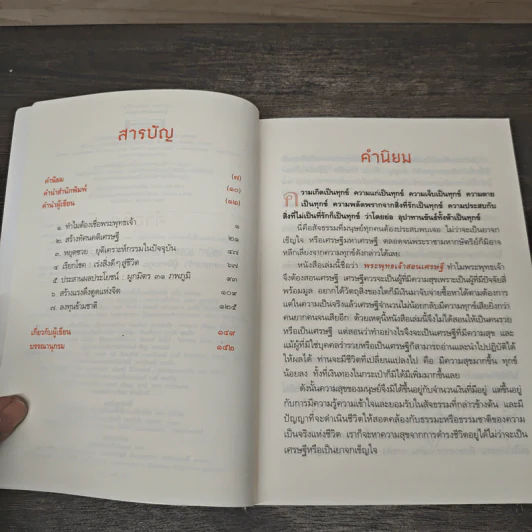 สารบัญ
คำนิยม (๗)
คำนำสำนักพิมพ์ (๑๐)
คำนำผู้เขียน (๑๒)
๑ ทำไมต้องเชื่อพระพุทธเจ้า ๑
๒. สร้างทัศนคติเศรษฐี ๒๑
๓. หยุดซวย : ยุติเคราะห์กรรมในปัจจุบัน ๔๗
๔. เรียกโชค : เร่งสิ่งดีๆ สู่ชีวิต ๖๗
๕. ประสานผลประโยชน์ : ผูกมิตร ๓๑ ภพภูมิ ๙๓
๖. สร้างแรงดึงดูดแห่งจิต ๑๐๙
๗. ลงทุนข้ามชาติ ๑๒๕
เกี่ยวกับผู้เขียน ๑๔๙
บรรณานุกรม ๑๕๒
คำนิยม
ความเกิดเป็นทุกข์ ความแก่เป็นทุกข์ ความเจ็บเป็นทุกข์ ความตาย
เป็นทุกข์ ความพลัดพรากจากสิ่งที่รักก็เป็นทุกข์ ความประสบกับ
สิ่งที่ไม่เป็นที่รักก็เป็นทุกข์ ว่าโดยย่อ อุปาทานขันธ์ทั้งห้าเป็นทุกข์
นี่คือสัจธรรมที่มนุษย์ทุกคนต้องประสบพบเจอ ไม่ว่าจะเป็นยาก
เข็ญใจ หรือเศรษฐีมหาเศรษฐี ตลอดจนพระราชามหากษัตริย์ก็มิอาจ
หลีกเลี่ยงจากความทุกข์ดังกล่าวได้เลย
หนังสือเล่มนี้ชื่อว่า พระพุทธเจ้าสอนเศรษฐี ทำไมพระพุทธเจ้า
จึงต้องสอนเศรษฐี เศรษฐีควรจะเป็นผู้ที่มีความสุขเพราะเป็นผู้ที่มีทรัพย์สิน
พร้อมมูล อยากได้วัตถุสิ่งของใดก็มีเงินมาจับจ่ายซื้อหาได้ตามต้องการ
แต่ในความเป็นจริงแล้วเศรษฐีจำนวนไม่น้อยกลับมีความทุกข์เสียยิ่งกว่า
คนยากคนจนเสียอีก ด้วยเหตุนี้หนังสือเล่มนี้จึงไม่ได้สอนให้เป็นคนรวย
หรือเป็นเศรษฐี แต่สอนว่าทำอย่างไรจึงจะเป็นเศรษฐีที่มีความสุข และ
แม้ผู้ที่มิใช่บุคคลร่ำรวยหรือเป็นเศรษฐีก็สามารถอ่านและนำไปปฏิบัติได้
ให้ผลได้ ท่านจะมีชีวิตที่เปลี่ยนแปลงไป คือ มีความสุขมากขึ้น ทุกข์
น้อยลง ทั้งที่เงินทองในกระเป๋าก็มิได้มีเพิ่มมากขึ้นเลย
ดังนั้นความสุขของมนุษย์จึงมิได้ขึ้นอยู่กับจำนวนเงินที่มีอยู่ แต่ขึ้นอยู่
กับการมีความรู้ความเข้าใจและยอมรับในสัจธรรมที่กล่าวข้างต้น และมี
ปัญญาที่จะดำเนินชีวิตให้สอดคล้องกับธรรมะหรือธรรมชาติของความ
เป็นจริงแห่งชีวิต เราก็จะหาความสุขจากการดำรงชีวิตอยู่ได้ไม่ว่าจะเป็น
เศรษฐีหรือเป็นยาจกเข็ญใจ